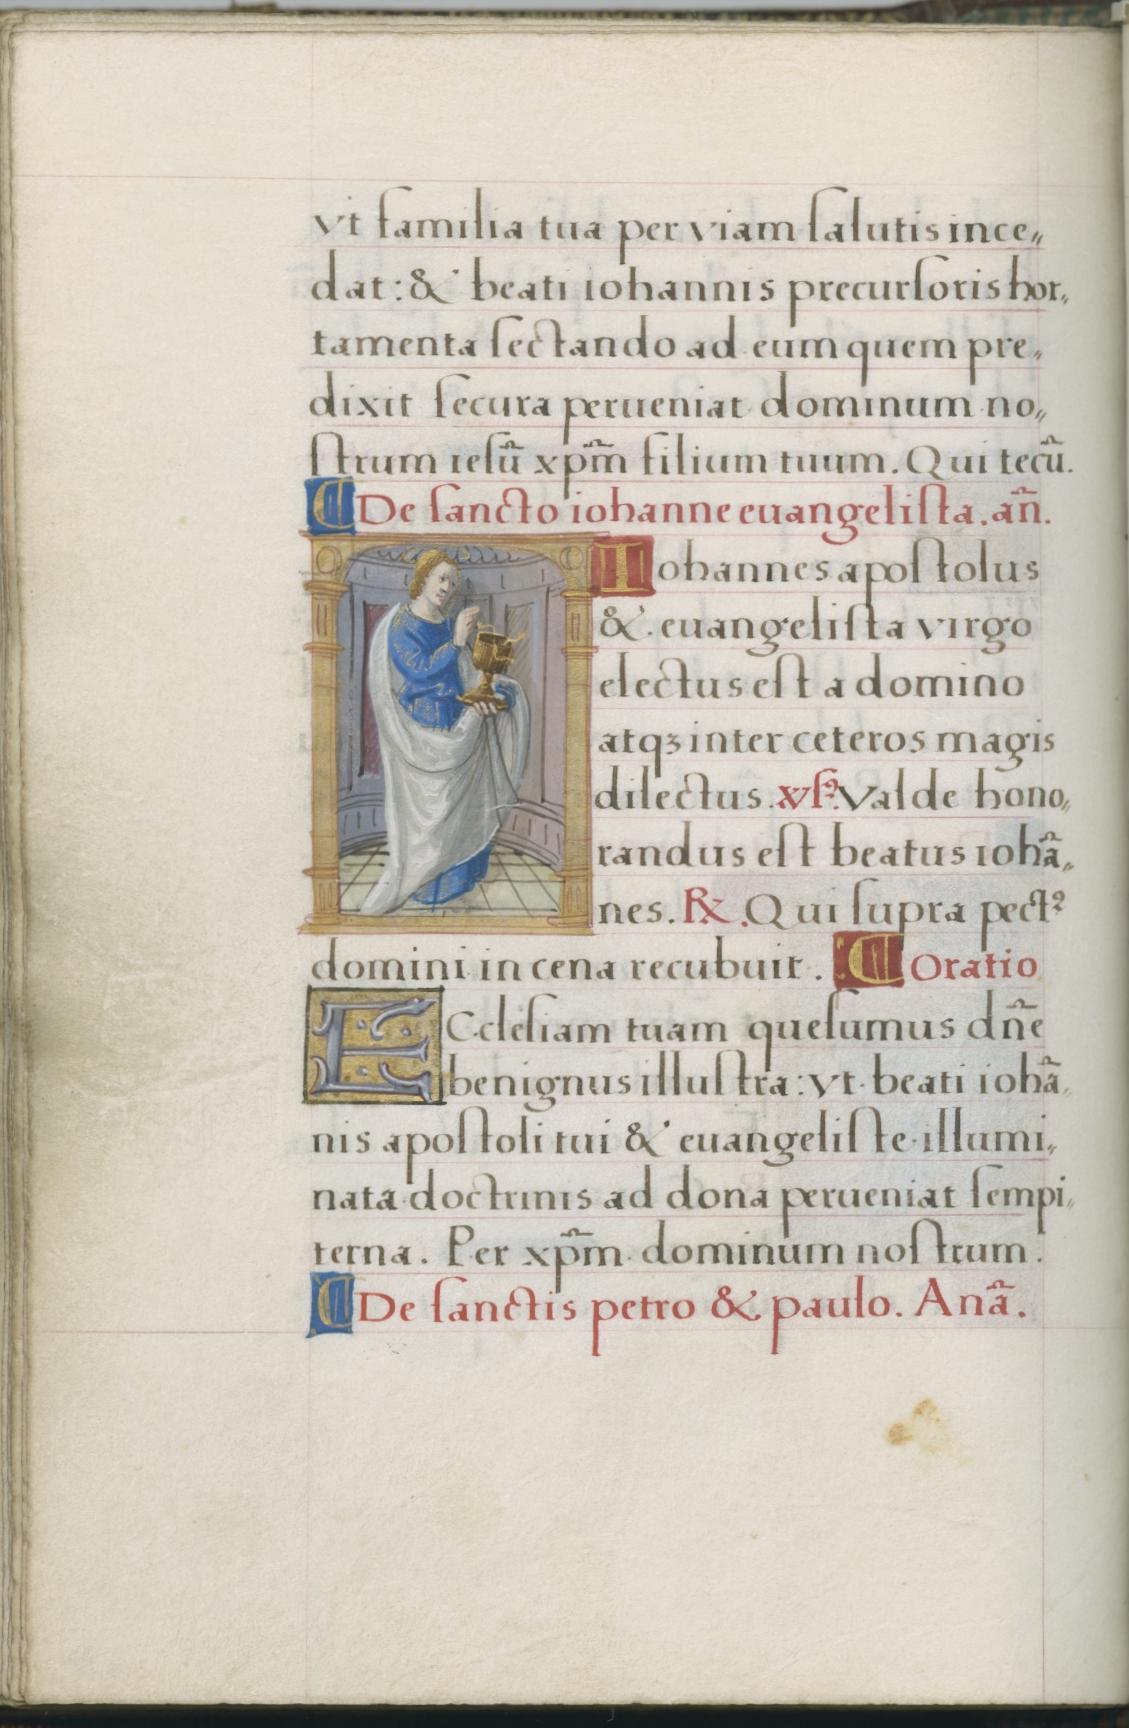 vt familia tua per viam salutis ince„
dat: & beati iohannis precursoris hor„
tamenta sectando ad eum quem pre„
dixit secura perueniat dominum no„
strum iesu᷑ xp̃m filium tuum. Qui tecũ.
De sancto iohanne euangelista. añ.
Iohannes apostolus
& euangelista virgo
electus est a domino
atqꝫ inter ceteros magis
dilectus. vsꝰ. Valde hono„
randus est beatus iohã„
nes. ℟. Qui supra pectꝰ
domini in cena recubuit. Oratio
ECclesiam tuam quesumus dñe
benignus illustra: vt beati iohã„
nis apostoli tui & euangeliste illumi„
nata doctrinis ad dona perueniat sempi„
terna. Per xp̃m dominum nostrum.
De sanctis petro & paulo. Anã.